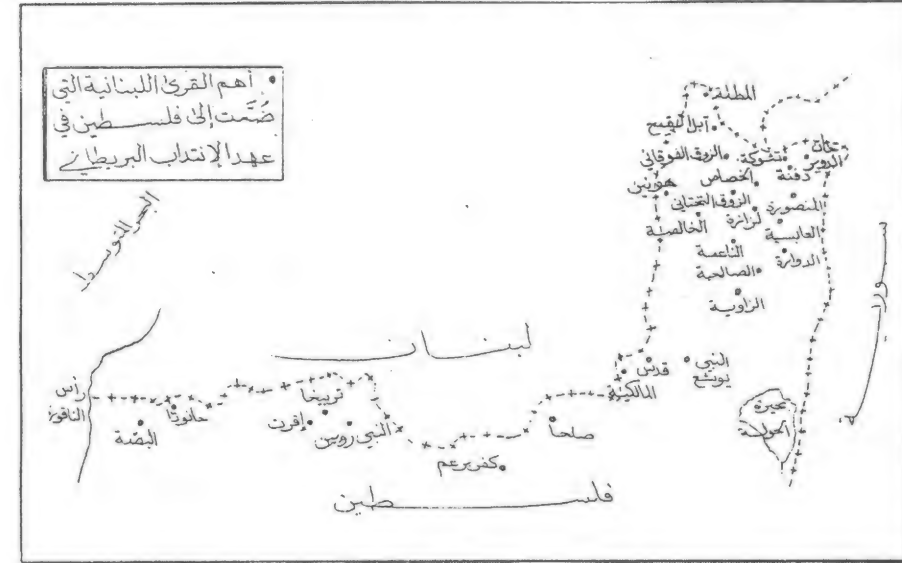 • أهم القرى اللبنانية التي
ضُمَّت إلى فلسطين في
عهد الإنتداب البريطاني
البحر المتوسط
المطلة
آبل القمح
خان
الدوير
الزوق الفوقاني
شوكة
دفنة
هونين
الخصاص
المنصورة
الزوق التحتاني
لزازة
الخالصة
العابسية
الناعمة
الدوارة
الصالحية
الزاوية
سورية
لبنان
النبي
يوشع
قدس
المالكية
بحيرة
الحولة
رأس
الناقورة
حانوتا
البصة
تربيخا
إقرت
النبي روبين
صلحا
كفر برعم
فلسطين